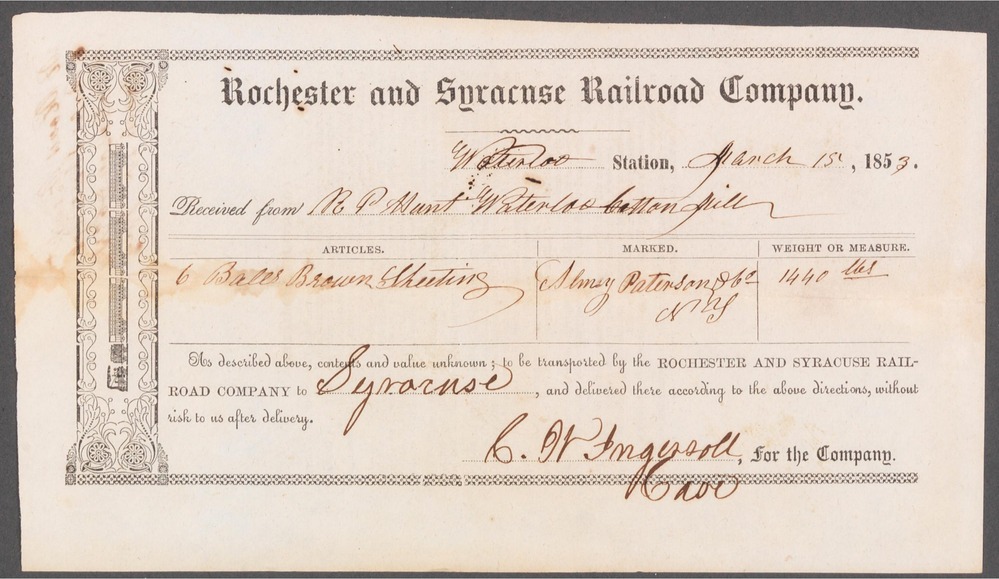 Rochester and Syracuse Railroad Company.
Waterloo Station, March 15, 1853.
Received from R P Hunt Waterloo Cotton Mill
ARTICLES. MARKED. WEIGHT OR MEASURE.
6 Bales Brown Sheeting Almy Paterson & Co 1440 lbs
N Y
As described above, contents and value unknown; to be transported by the ROCHESTER AND SYRACUSE RAIL-
ROAD COMPANY to Syracuse, and delivered there according to the above directions, without
risk to us after delivery.
C. W Ingersoll, For the Company.